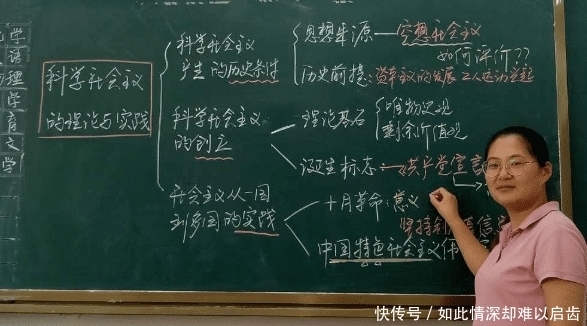 学
语
理
学
育
文
学
科学社会主义
的理论与实践
科学社会主义
产生的历史条件
思想来源——空想社会主义
如何评价??
历史前提:资本主义的发展 工人运动兴起
科学社会主义
的创立
理论基石
唯物史观
剩余价值观
诞生标志:《共产党宣言
社会主义从一国
到多国的实践
十月革命:意义
坚持
中国特色社会主义伟
快传号 / 如此情深却难以启齿